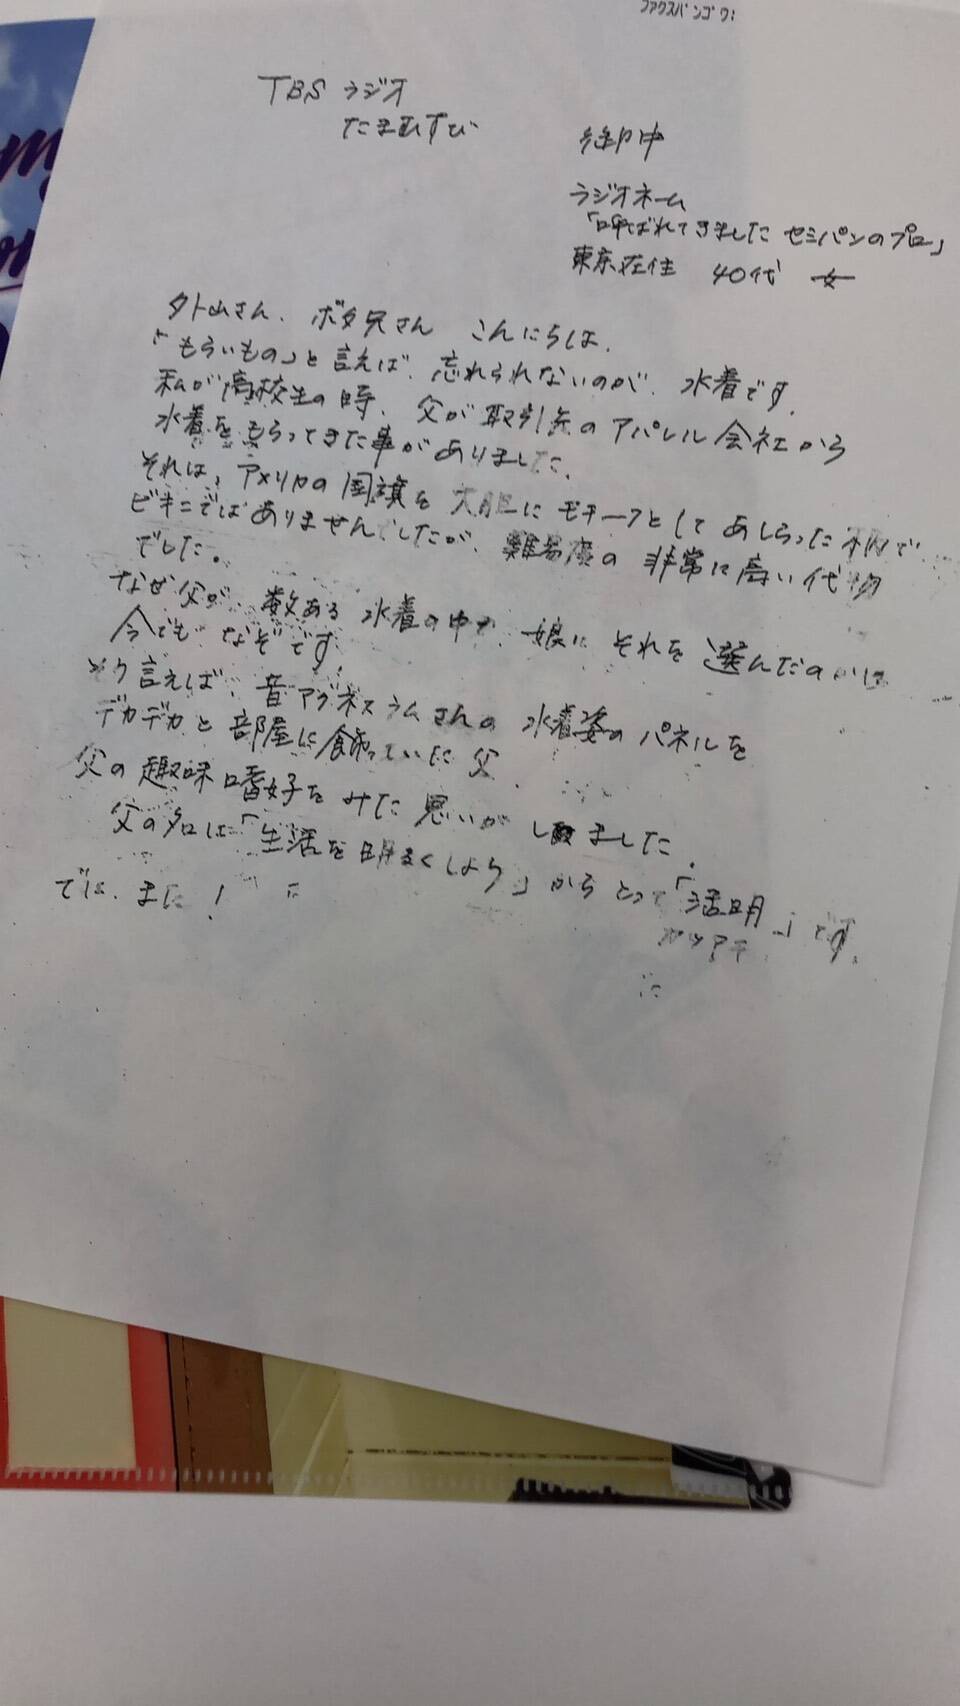 ファクスバンゴウ:
TBSラジオ
たまむすび
御中
ラジオネーム
「呼ばれてきました セミパンのプロ」
東京在住 40代 女
外山さん、ボタ兄さん こんにちは、
「もらいもの」と言えば、忘れられないのが、水着です。
私が高校生の時、父が取引先のアパレル会社から
水着をもらってきた事がありました。
それは、アメリカの国旗を大胆にモチーフとしてあしらった柄で
ビキニではありませんでしたが、難易度の非常に高い代物
でした。
なぜ父が、数ある水着の中で、娘にそれを選んだのかは
今でもなぞです!
そう言えば、昔アグネスラムさんの水着姿のパネルを
デカデカと部屋に飾っていた父、
父の趣味嗜好をみた思いがしました。
父の名は「生活を明るくしよう」からとって「活明」です。
カツアキ
では、また!